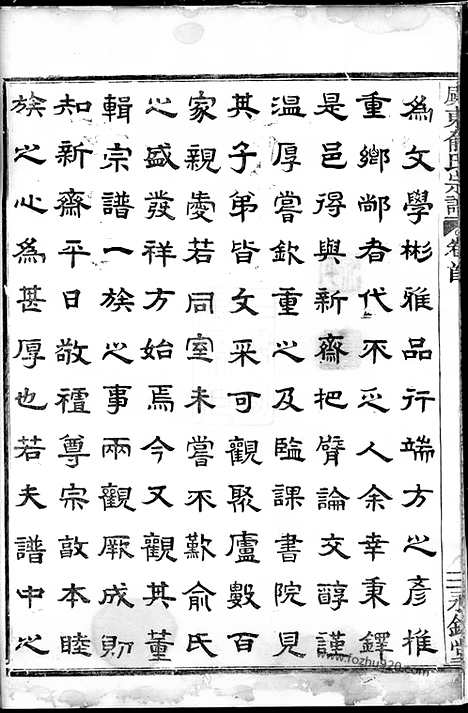 東俞氏宗譜 卷首
為文學彬雅品行端方之彥推
重鄉鄙者代不乏人余幸秉鐸
是邑得與新齋把臂論交醇謹
溫厚嘗欽重之及臨課書院見
其子弟皆文采可觀聚廬數百
家親愛若同室未嘗不歎俞氏
之盛發祥方始焉今又觀其董
輯宗譜一族之事兩觀厥成則
知新齋平日敬尊宗敦本睦
族之心為甚厚也若夫譜中之
www.fozhu920.com